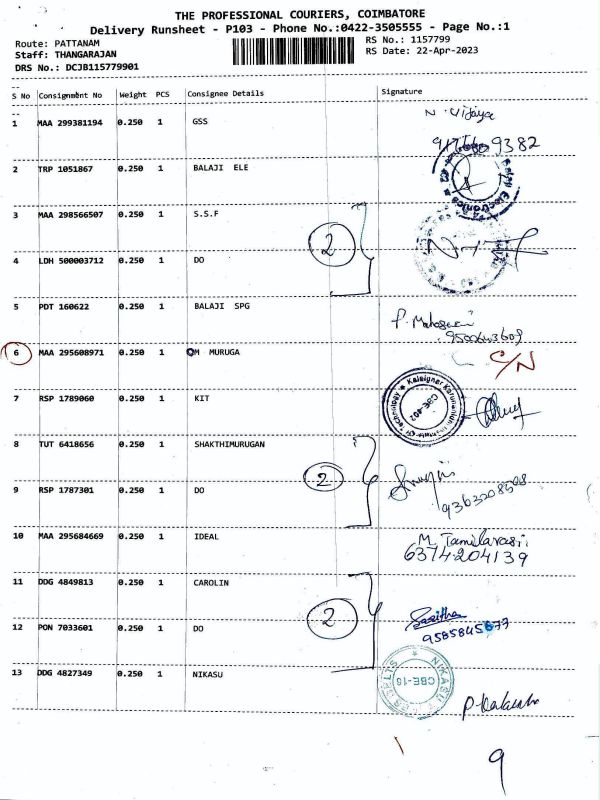 THE PROFESSIONAL COURIERS, COIMBATORE
Delivery Runsheet - P103 - Phone No.:0422-3505555 - Page No.:1
Route: PATTANAM
RS No.: 1157799
Staff: THANGARAJAN
RS Date: 22-Apr-2023
DRS No.: DCJB115779901
S No Consignment No Weight PCS Consignee Details Signature
1 MAA 299381194 0.250 1 GSS N. Vijaya
9382
2 TRP 1051867 0.250 1 BALAJI ELE
3 MAA 298566507 0.250 1 S.S.F
2
4 LDH 500003712 0.250 1 DO
5 PDT 160622 0.250 1 BALAJI SPG
6 MAA 295608971 0.250 1 OM MURUGA C/N
7 RSP 1789060 0.250 1 KIT
Kalaignar Karunanidhi Institute of Technology
CBE-402
8 TUT 6418656 0.250 1 SHAKTHIMURUGAN
2
9 RSP 1787301 0.250 1 DO
10 MAA 295684669 0.250 1 IDEAL M. Tamilarasi
6374204139
11 DDG 4849813 0.250 1 CAROLIN
2
Saritha
9585845677
12 PON 7033601 0.250 1 DO
13 DDG 4827349 0.250 1 NIKASU
NIKASU
CBE-16
9